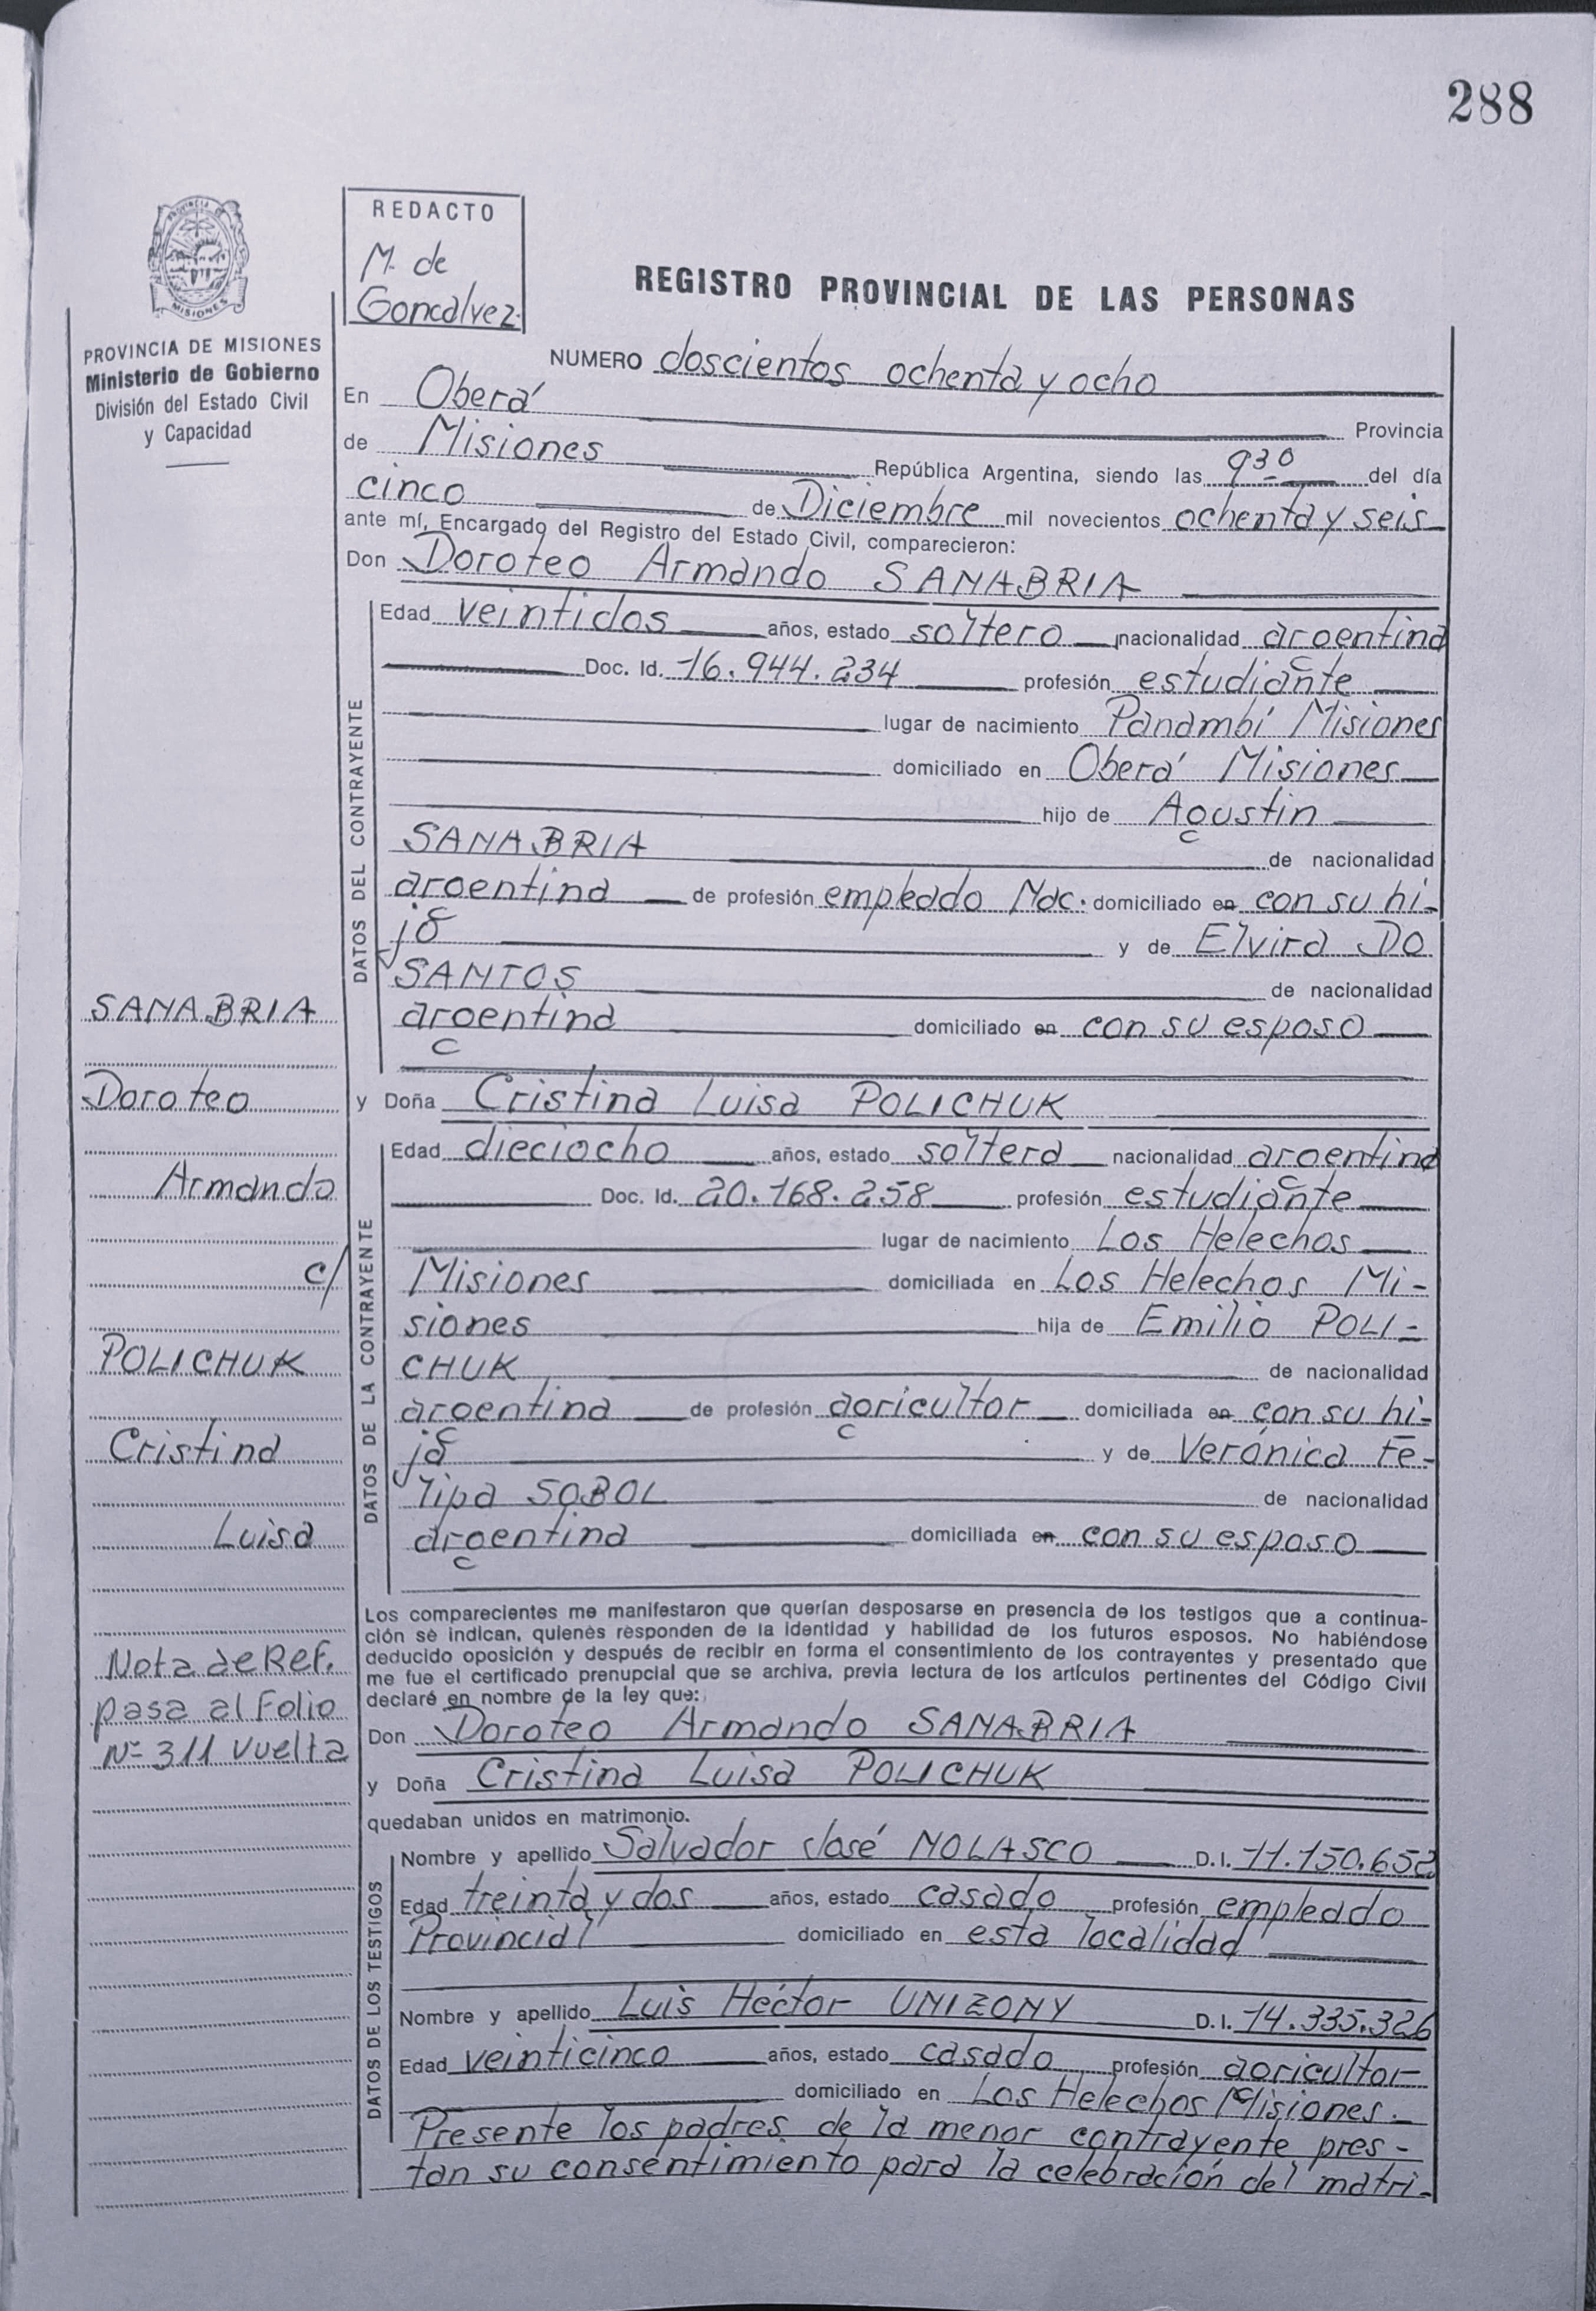 288
REDACTO
M. de
Goncalvez
PROVINCIA DE
MISIONES
PROVINCIA DE MISIONES
Ministerio de Gobierno
División del Estado Civil
y Capacidad
REGISTRO PROVINCIAL DE LAS PERSONAS
NUMERO doscientos ochenta y ocho
En Oberá Provincia
de Misiones República Argentina, siendo las 930 del día
cinco de Diciembre mil novecientos ochenta y seis
ante mí, Encargado del Registro del Estado Civil, comparecieron:
Don Doroteo Armando SANABRIA
DATOS DEL CONTRAYENTE
Edad veintidos años, estado soltero nacionalidad argentina
Doc. Id. 16.944.234 profesión estudiante
lugar de nacimiento Panambí Misiones
domiciliado en Oberá Misiones
hijo de Agustin
SANABRIA de nacionalidad
argentina de profesión empleado Nac. domiciliado en con su hi-
jo y de Elvira DO
SANTOS de nacionalidad
argentina domiciliado en con su esposo
y Doña Cristina Luisa POLICHUK
DATOS DE LA CONTRAYENTE
Edad dieciocho años, estado soltera nacionalidad argentina
Doc. Id. 20.168.258 profesión estudiante
lugar de nacimiento Los Helechos
Misiones domiciliada en Los Helechos Mi-
siones hija de Emilio POLI-
CHUK de nacionalidad
argentina de profesión agricultor domiciliada en con su hi-
ja y de Verónica Fe-
lipa SOBOL de nacionalidad
argentina domiciliada en con su esposo
SANABRIA
Doroteo
Armando
c/
POLICHUK
Cristina
Luisa
Nota de Ref.
pasa al Folio
Nº 311 vuelta
Los comparecientes me manifestaron que querían desposarse en presencia de los testigos que a continua-
ción se indican, quienes responden de la identidad y habilidad de los futuros esposos. No habiéndose
deducido oposición y después de recibir en forma el consentimiento de los contrayentes y presentado que
me fue el certificado prenupcial que se archiva, previa lectura de los artículos pertinentes del Código Civil
declaré en nombre de la ley que:
Don Doroteo Armando SANABRIA
y Doña Cristina Luisa POLICHUK
quedaban unidos en matrimonio.
DATOS DE LOS TESTIGOS
Nombre y apellido Salvador José NOLASCO D.I. 11.150.652
Edad treinta y dos años, estado casado profesión empleado
Provincial domiciliado en esta localidad
Nombre y apellido Luis Héctor UNIZONY D.I. 14.335.326
Edad veinticinco años, estado casado profesión agricultor
domiciliado en Los Helechos Misiones.-
Presente los padres de la menor contrayente pres-
tan su consentimiento para la celebración del matri-